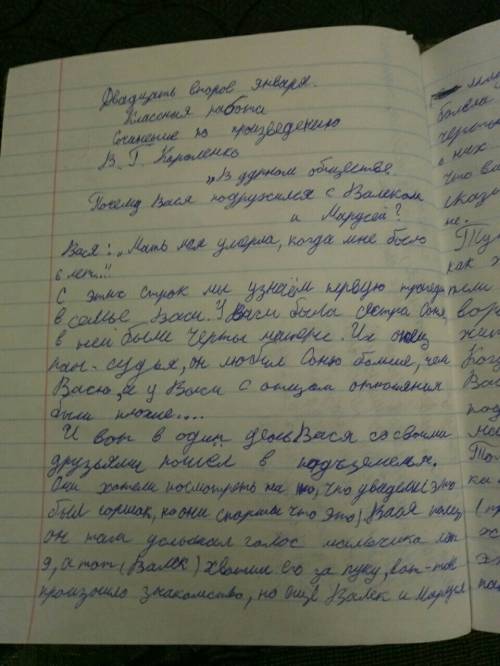 Двадцать второе января.
Классная работа
Сочинение по произведению
В. Г. Короленко
„В дурном обществе.
Почему Вася подружился с Валеком
и Марусей?
Вася: „Мать моя умерла, когда мне было
6 лет..."
С этих строк мы узнаём первую
в семье Васи. У Васи была сестра Соня,
в ней были черты матери. Их отец
пан-судья, он любил Соню больше, чем
Васю, а у Васи с отцом отношения
были плохие....
И вот в один день Вася со своими
друзьями пошел в подземелья.
Они хотели посмотреть на то, что увидели это
был горшок, но они спорили что это) Вася
он там услышал голос мальчика лет
9, а тот (Валек) хватил его за руку, вот-так
произошло знакомство, но ещё Валек и Маруся
болела
черты
с них
что
сказа
не.
Ту
как
вор
жи
Ког
Ва
под
То-
ка
(пр